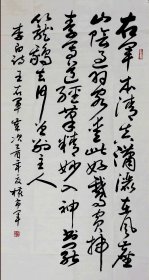 右軍本清真瀟灑在風塵
山陰過羽客愛此好鵝賓掃
素寫道經筆精妙入神書罷
籠鵝去何曾別主人
李白詩王右軍歲次年